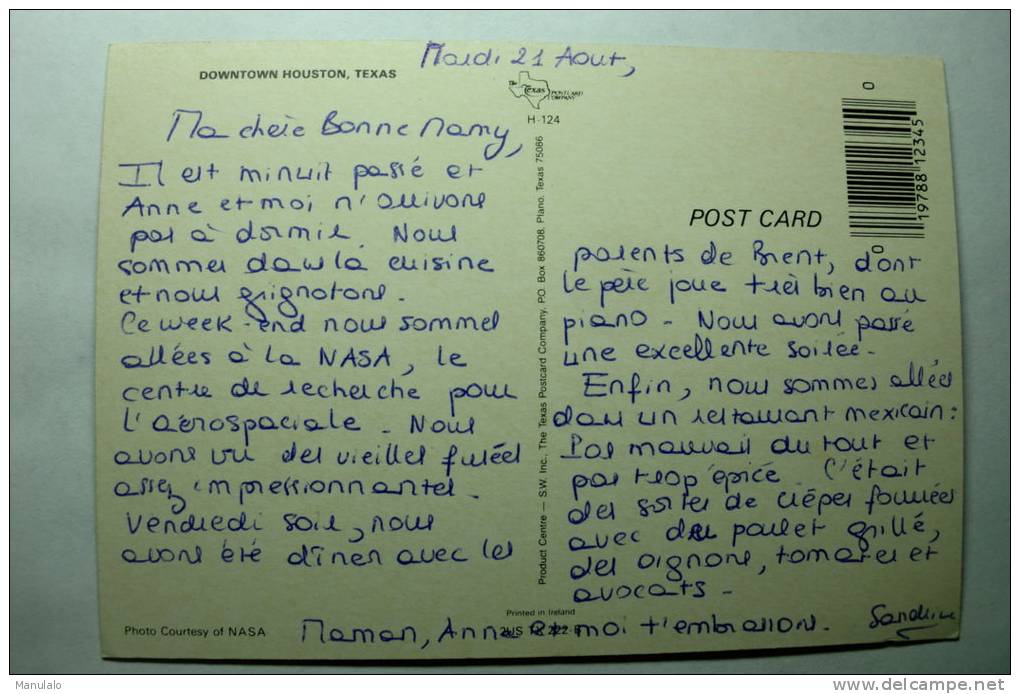 Mardi 21 Aout,
DOWNTOWN HOUSTON, TEXAS
The Texas POSTCARD COMPANY
H-124
Ma chère Bonne Mamy,
Il est minuit passé et
Anne et moi n'arrivons
pas à dormir. Nous
sommes dans la cuisine
et nous grignotons.
Ce week-end nous sommes
allées à la NASA, le
centre de recherche pour
l'aérospaciale. Nous
avons vu des vieilles fusées
assez impressionnantes.
Vendredi soir, nous
avons été dîner avec les
Product Centre — S.W. Inc., The Texas Postcard Company, P.O. Box 860708, Plano, Texas 75086
0
19788 12345
0
POST CARD
parents de Brent, dont
le père joue très bien au
piano - Nous avons passé
une excellente soirée.
Enfin, nous sommes allées
dans un restaurant mexicain:
Pas mauvais du tout et
pas trop épicé. C'était
des sortes de crêpes fourrées
avec du poulet grillé,
des oignons, tomates et
avocats -
Printed in Ireland
2US TX 222-
Photo Courtesy of NASA
Maman, Anne et moi t'embrassons.
Sandrine
Manulalo
delcampe.net